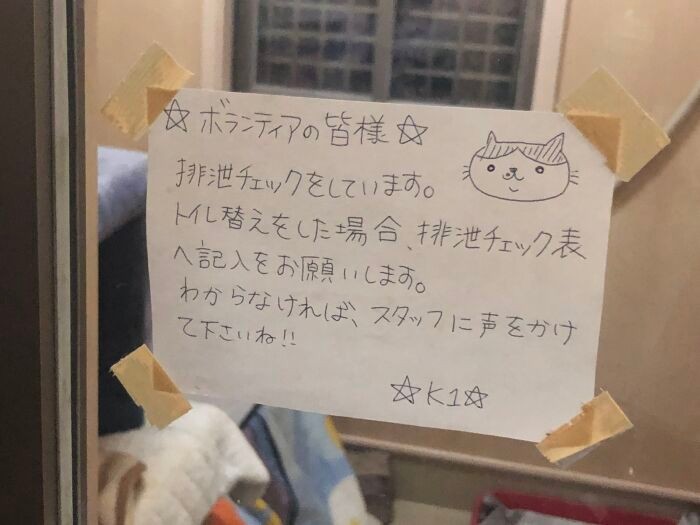 ☆ボランティアの皆様☆
排泄チェックをしています。
トイレ替えをした場合、排泄チェック表
へ記入をお願いします。
わからなければ、スタッフに声をかけ
て下さいね!!
☆K1☆